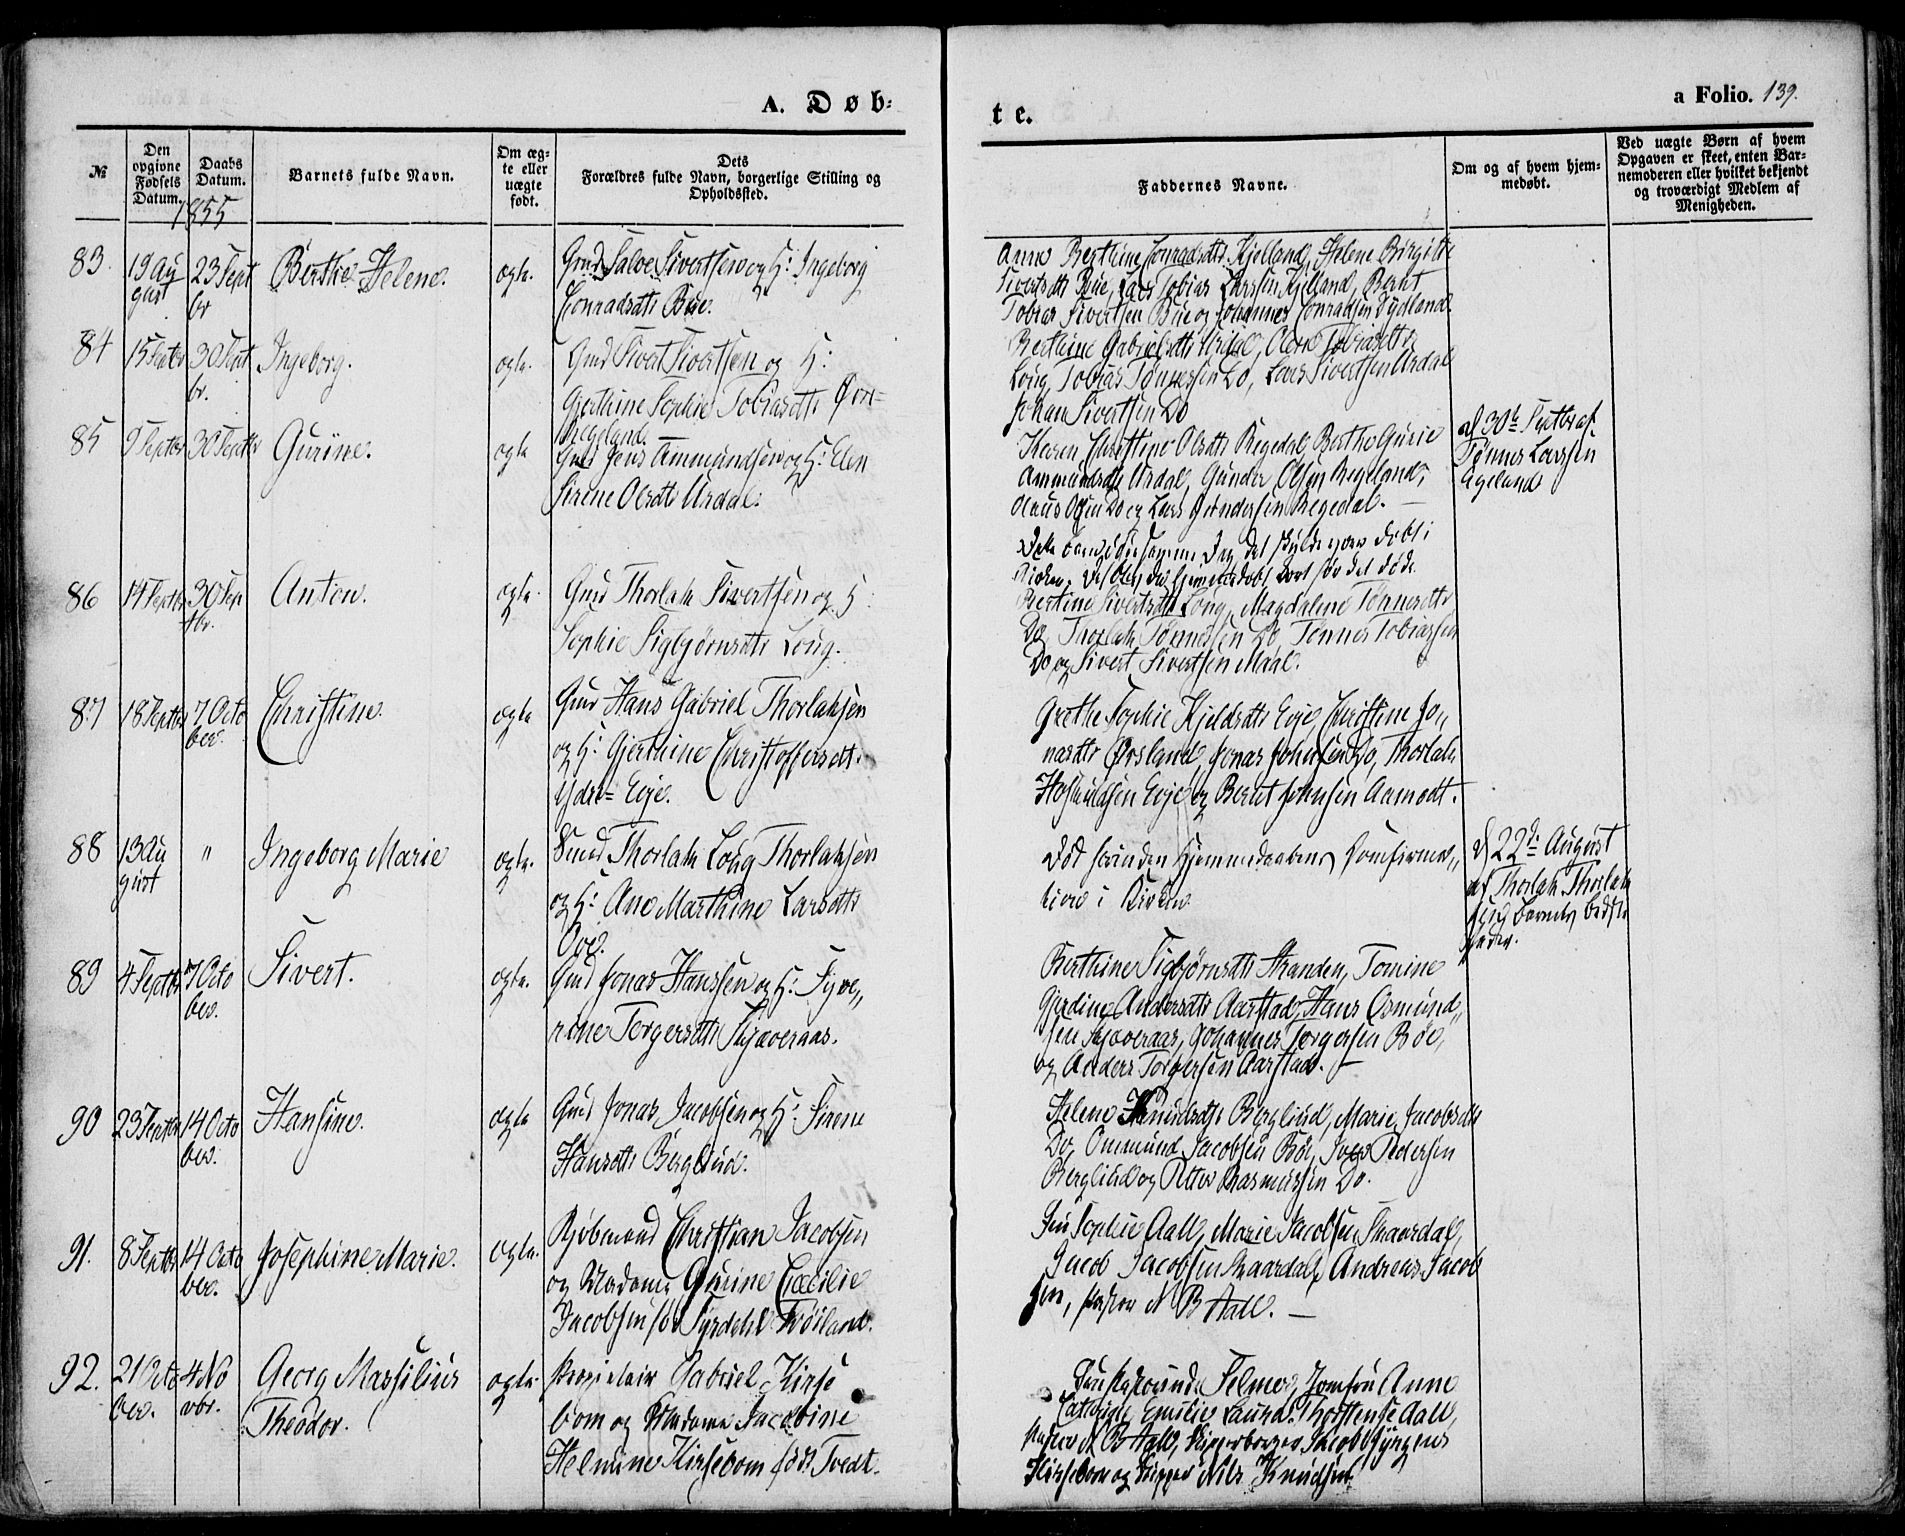 A. Døb-
te.
a Folio. 139.
№
Den opgivne Fødsels Datum.
Daabs Datum.
Barnets fulde Navn.
Om æg-
te eller
uægte
født.
Dets
Forældres fulde Navn, borgerlige Stilling og
Opholdssted.
Faddernes Navne.
Om og af hvem hjem-
medøbt.
Ved uægte Børn af hvem
Opgaven er skeet, enten Bar-
nemoderen eller hvilket bekjendt
og troværdigt Medlem af
Menigheden.
1855
83. 19 Au
gust
23 Sept
br
Berthe Helene.
ægte.
Gmd Salve Sivertsen og H: Ingeborg
Conradsdtr Bue.
Anne Berthine Conradsdtr Kjelland, Helene Birgitte
Sivertsdtr Bue, Lars Tobias Larssen Kjelland, Berht
Tobias Sivertsen Bue og Johannes Conradsen Dydland.
84 15 Septbr 30 Sept
br.
Ingeborg.
ægte.
Gmd Sivert Sivertsen og H:
Gjerthine Sophie Tobiasdtr Øvre-
Regeland.
Berthine Gabrielsdtr Urdal, Olene Tobiasdtr
Loug, Tobias Tønnessen Do, Lars Sivertsen Urdal
Johan Sivertsen Do
85 9 Septbr 30 Septbr
Gurine.
ægte
Gmd Jens Ammundsen og H: Elen
Sirene Olsdtr Urdal.
Karen Christine Olsdtr Regedal, Berthe Gurie
Ammundsdtr Urdal, Gunder Olsen Regeland,
Claus Olsen Do og Lars Gundersen Regedal.
d 30te Septbr af
Tønnes Larssen
Ageland
86 14 Septbr 30 Sep
tbr.
Anton.
ægte.
Gmd Thorlak Sivertsen og H:
Sophie Sigbjørnsdtr Loug.
Bertine Sivertsdtr Loug, Magdalene Tønnesdtr
Do, Thorlak Tønnessen Do, Tønnes Tobiassen
Do og Sivert Sivertsen Maal.
87 18 Septbr 7 Octo
ber.
Christine.
ægte
Gmd Hans Gabriel Thorlaksen
og H: Gjerthine Christoffersdt.
Ydre- Eeje.
Grethe Sophie Kjeldsdtr Eeje, Christine Jo„
nasdtr Ørsland, Jonas Johnsen Do, Thorlak
Eeje og Bernt Johnsen Aamodt.
88 13 Au
gust
"
Ingeborg Marie
ægte.
Thorlak Loug Thorlaksen
og H: Ane Marthine Larsdtr
Død forinden Hjemmedaabens Confirma„
tion i Kirken
d 22de August
af Thorlak Thorlak
sen Barnets Bedste
fader.
89 4 Septbr 7 Octo
ber.
Sivert.
ægte.
Gmd Jonas Hanssen og H: Syve„
rine Torgersdtr Skjæveraas.
Berthine Sigbjørnsdtr Stranden, Tomine
Gjerdine Andersdtr Aarstad, Hans Osmund„
sen Skjæveraas, Johannes Torgersen Bøe,
og Anders Torgersen Aarstad.
90 23 Septbr 14 Octo
ber.
Hansine.
ægte
Gmd Jonas Jacobsen og H: Sirene
Hansdtr Bergliud.
Helene Knudsdtr Bergliud, Marie Jacobsdtr
Do, Ommund Jacobsen Bøe, Iver Pedersen
Bergliud og Petter Rasmussen Do.
91. 8 Septbr 14 Octo
ber.
Josephine Marie.
ægte.
Kjøbmand Christian Jacobsen
og Madame Gurine Cæcilie
Jacobsen f. Syrdahl Frøiland.
Fru Sophie Aall, Marie Jacobsen Skaardal,
Jacob Jacobsen Skaardal, Andreas Jacob
sen, Pastor N B Aall.
92. 21 Octo
ber.
4 No
vbr.
Georg Massilius
Theodor.
ægte
Proprietair Gabriel Kirse
bom og Madame Jacobine
Helmine Kirsebom født Tvedt.
Felmer, Jomfru Anne
Cathrine Emilie Laura Thortense Aall,
Pastor N B Aall, Jacob Jürgens
Kirsebom og Skipper Nils Knudsen.